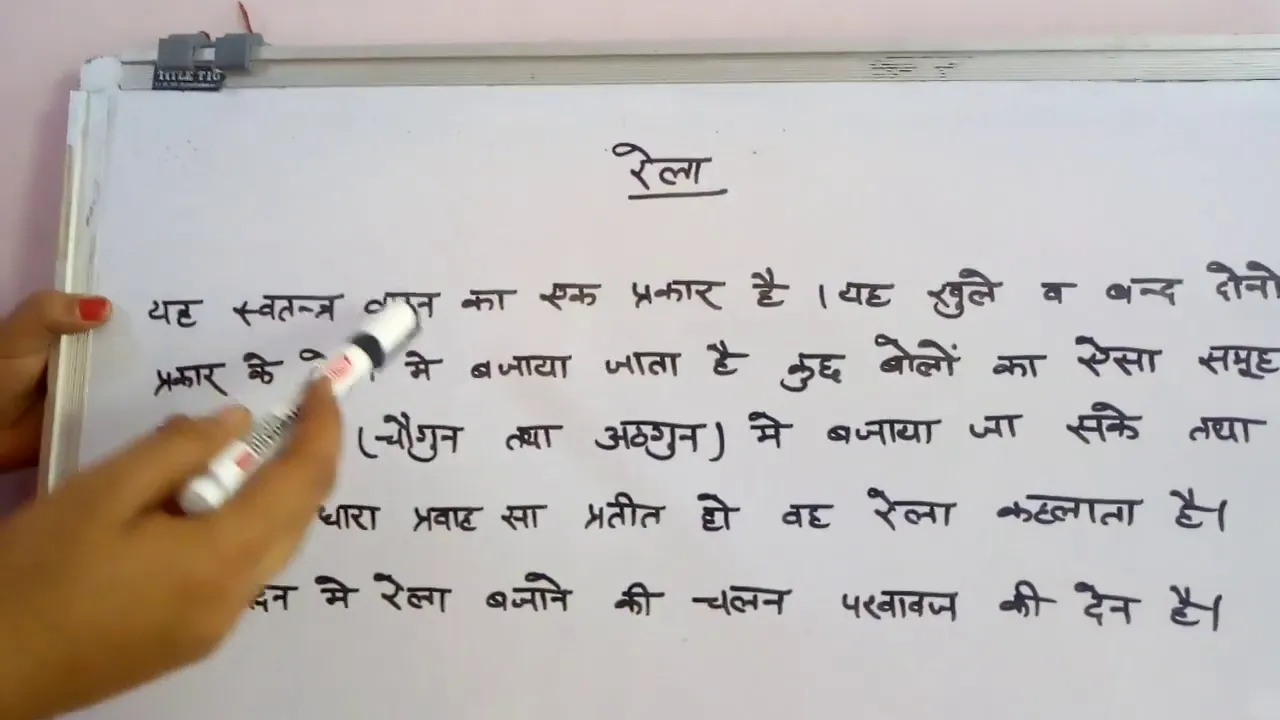 TITLE TIG
रेला
यह स्वतन्त्र का एक प्रकार है । यह खुले व बन्द दोनो
प्रकार के मे बजाया जाता है कुछ बोलों का ऐसा समूह
(चौगुन तथा अठगुन) मे बजाया जा सके तथा
धारा प्रवाह सा प्रतीत हो वह रेला कहलाता है।
मे रेला बजाने की चलन पखावज की देन है।